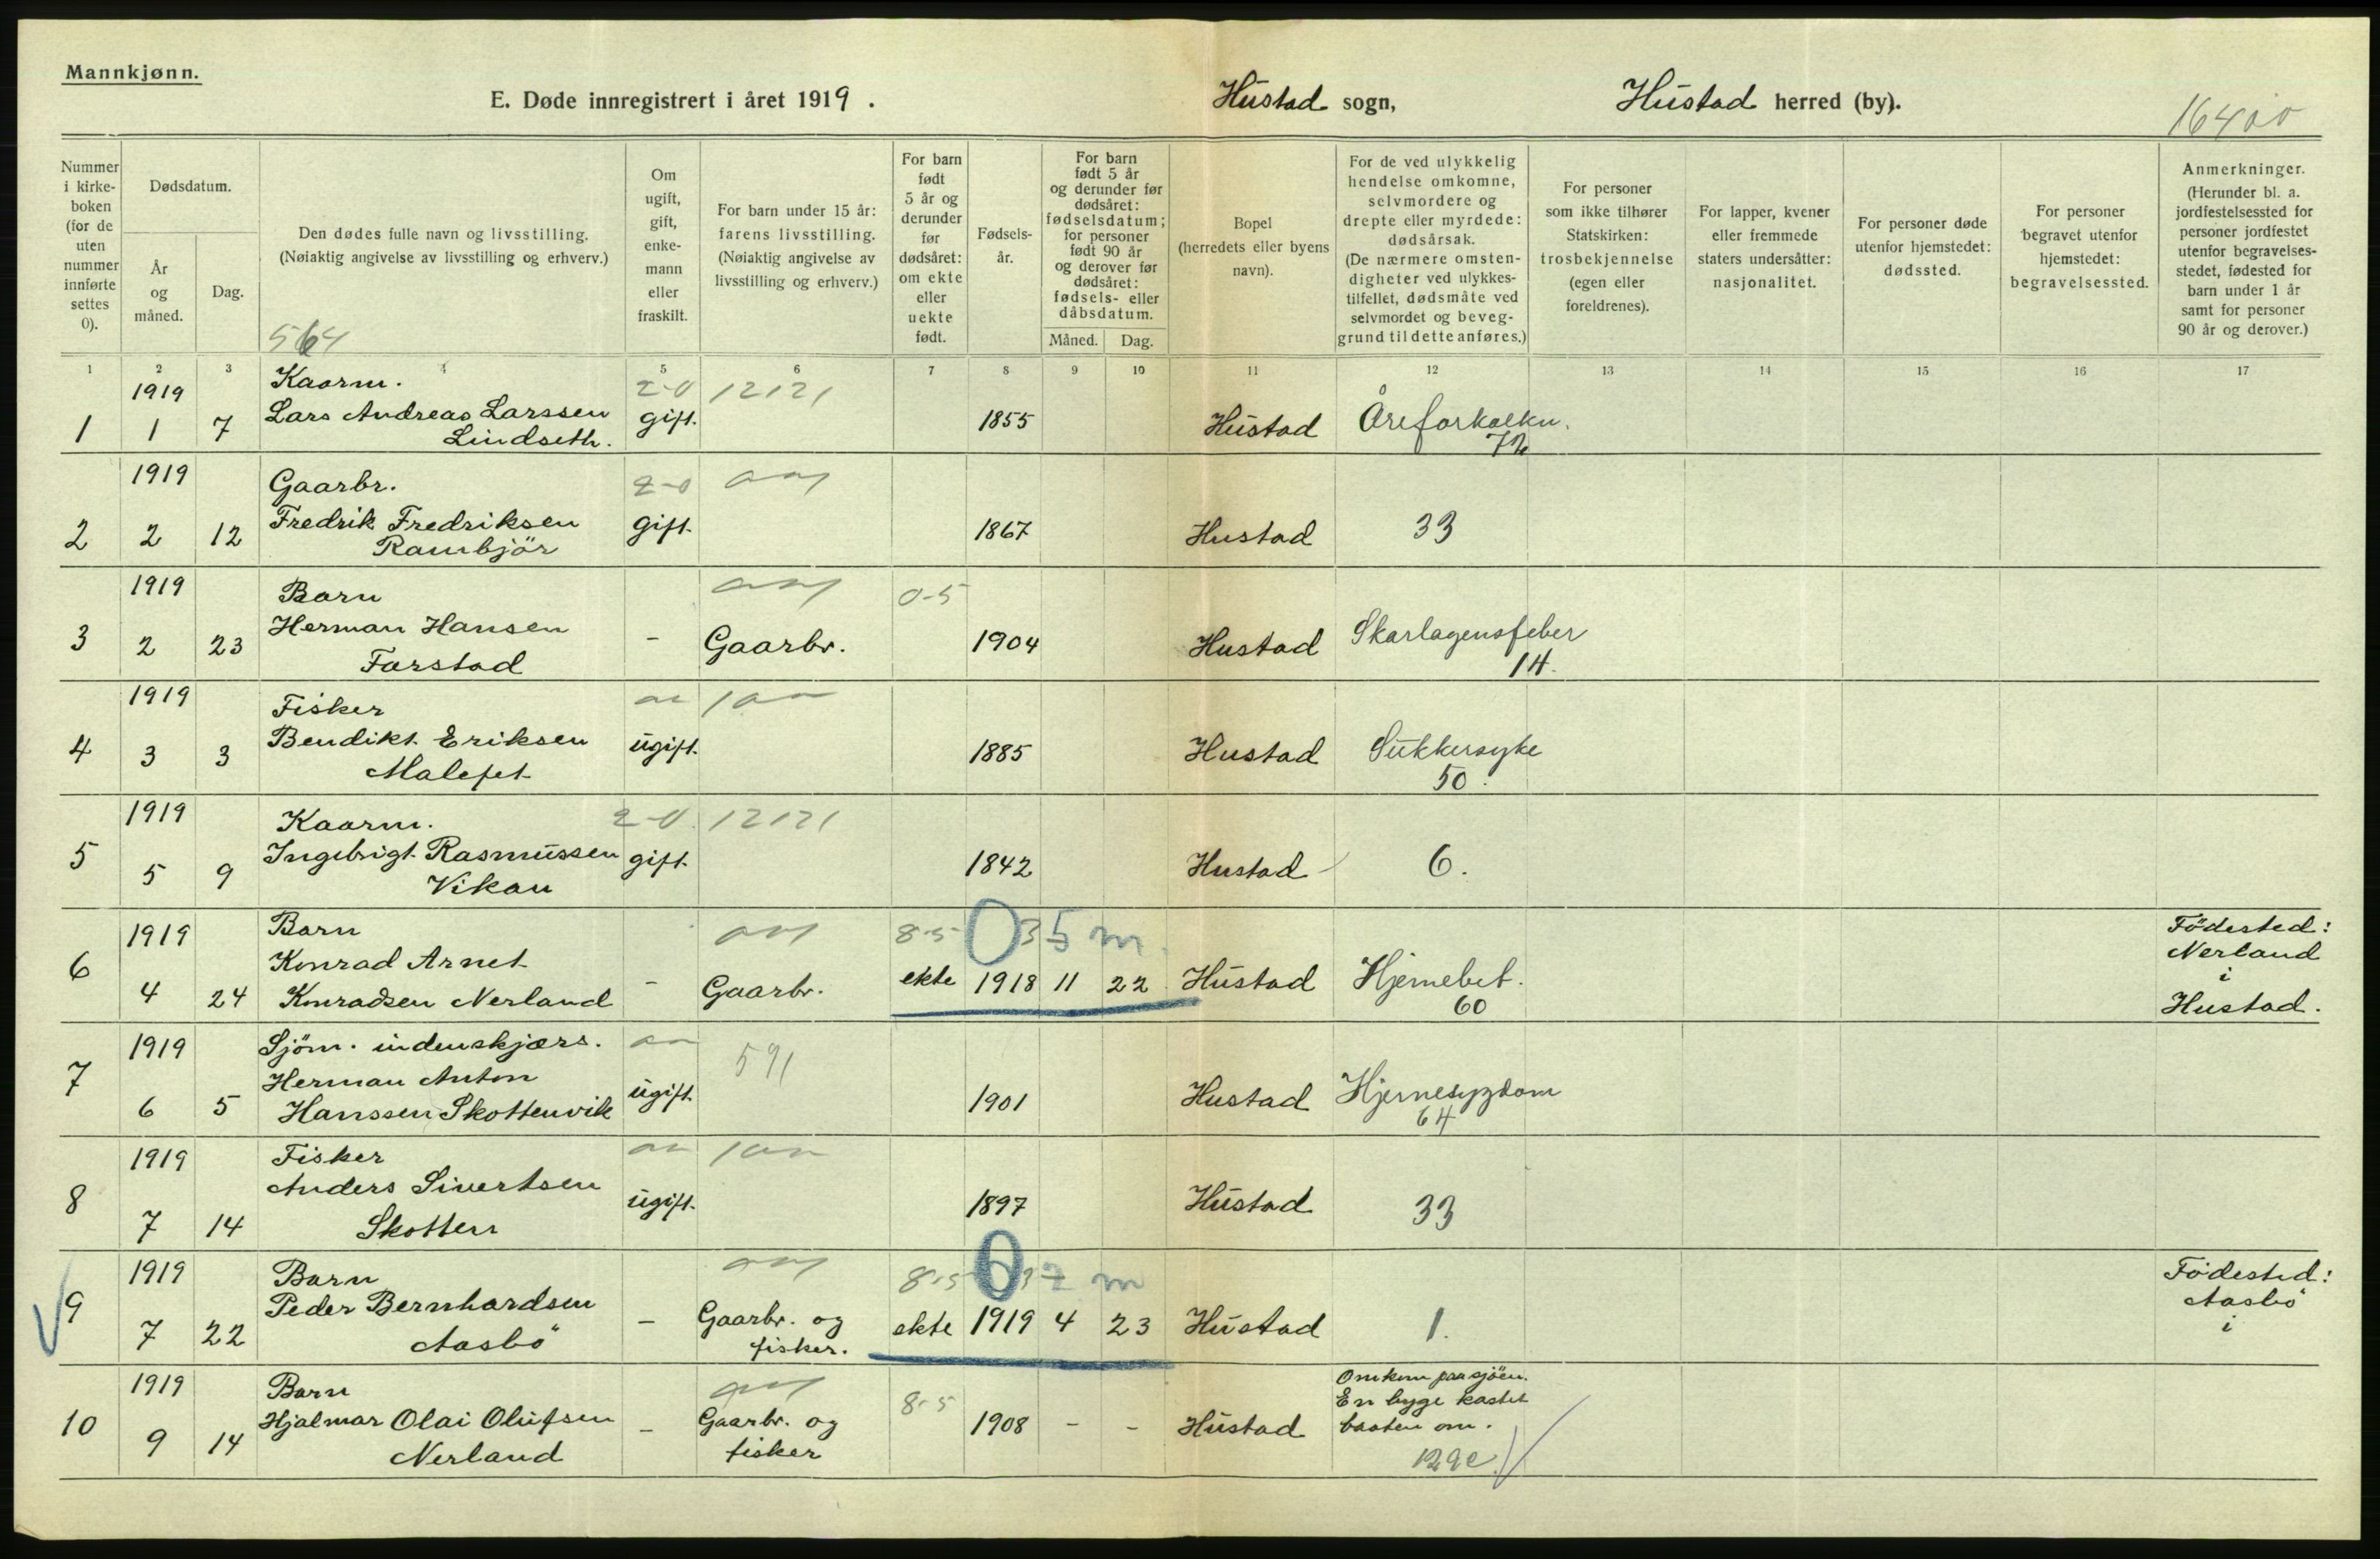 Mannkjønn.
E. Døde innregistrert i året 1919.
Hustad sogn,
Hustad herred (by).
16400
Nummer i kirke-boken (for de uten nummer innførte settes 0).
Dødsdatum.
År og måned.
Dag.
Den dødes fulle navn og livsstilling.
(Nøiaktig angivelse av livsstilling og erhverv.)
564
Om ugift, gift, enke-mann eller fraskilt.
For barn under 15 år: farens livsstilling.
(Nøiaktig angivelse av livsstilling og erhverv.)
For barn født 5 år og derunder før dødsåret: om ekte eller uekte født.
Fødsels-år.
For barn født 5 år og derunder før dødsåret: fødselsdatum; for personer født 90 år og derover før dødsåret: fødsels- eller dåbsdatum.
Måned.
Dag.
Bopel (herredets eller byens navn).
For de ved ulykkelig hendelse omkomne, selvmordere og drepte eller myrdede: dødsårsak.
(De nærmere omsten-digheter ved ulykkes-tilfellet, dødsmåte ved selvmordet og beveg-grund til dette anføres.)
For personer som ikke tilhører Statskirken: trosbekjennelse (egen eller foreldrenes).
For lapper, kvener eller fremmede staters undersåtter: nasjonalitet.
For personer døde utenfor hjemstedet: dødssted.
For personer begravet utenfor hjemstedet: begravelsessted.
Anmerkninger.
(Herunder bl. a. jordfestelsessted for personer jordfestet utenfor begravelses-stedet, fødested for barn under 1 år samt for personer 90 år og derover.)
1 2 3 4 5 6 7 8 9 10 11 12 13 14 15 16 17
1919 Kaarm. 2-0 12121
1 1 7 Lars Andreas Larssen Lindseth. gift. 1855 Hustad Åreforkalkn. 72
1919 Gaarbr. 2-0
2 2 12 Fredrik Fredriksen Rambjör gift. 1867 Hustad 33
1919 Barn 0-5
3 2 23 Herman Hansen Farstad - Gaarbr. 1904 Hustad Skarlagensfeber 14.
1919 Fisker
4 3 3 Bendikt Eriksen Malefet ugift. 1885 Hustad Sukkersyke 50.
1919 Kaarm. 2-0 12121
5 5 9 Ingebrigt Rasmussen Vikan gift. 1842 Hustad 6.
1919 Barn 8-5 0 5 m.
6 4 24 Konrad Arnet Konradsen Nerland - Gaarbr. ekte 1918 11 22 Hustad Hjernebet. 60 Födested: Nerland i Hustad.
1919 Sjöm. indenskjærs. 591
7 6 5 Herman Anton Hanssen Skottenvik ugift. 1901 Hustad Hjernesygdom 64
1919 Fisker
8 7 14 Anders Sivertsen Skotten ugift. 1897 Hustad 33
1919 Barn 8-5 0 2 m
9 7 22 Peder Bernhardsen Aasbö - Gaarbr. og fisker. ekte 1919 4 23 Hustad 1. Födested: Aasbö i
1919 Barn 8-5
10 9 14 Hjalmar Olai Olufsen Nerland - Gaarbr. og fisker 1908 - - Hustad Omkom paa sjöen. En byge kastet baaten om. 129c